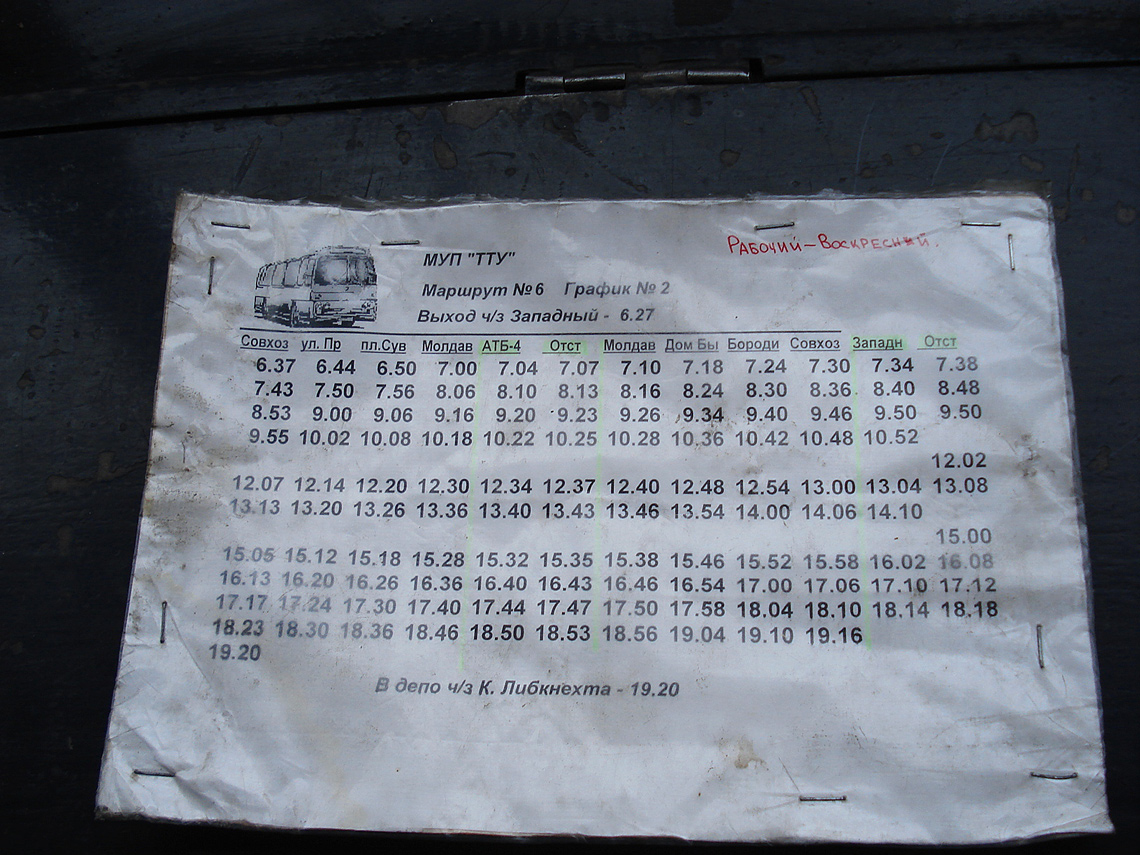 Рабочий-Воскресный.
МУП "ТТУ"
Маршрут №6 График №2
Выход ч/з Западный - 6.27
Совхоз ул. Пр пл.Сув Молдав АТБ-4 Отст Молдав Дом Бы Бороди Совхоз Западн Отст
6.37 6.44 6.50 7.00 7.04 7.07 7.10 7.18 7.24 7.30 7.34 7.38
7.43 7.50 7.56 8.06 8.10 8.13 8.16 8.24 8.30 8.36 8.40 8.48
8.53 9.00 9.06 9.16 9.20 9.23 9.26 9.34 9.40 9.46 9.50 9.50
9.55 10.02 10.08 10.18 10.22 10.25 10.28 10.36 10.42 10.48 10.52
12.02
12.07 12.14 12.20 12.30 12.34 12.37 12.40 12.48 12.54 13.00 13.04 13.08
13.13 13.20 13.26 13.36 13.40 13.43 13.46 13.54 14.00 14.06 14.10
15.00
15.05 15.12 15.18 15.28 15.32 15.35 15.38 15.46 15.52 15.58 16.02 16.08
16.13 16.20 16.26 16.36 16.40 16.43 16.46 16.54 17.00 17.06 17.10 17.12
17.17 17.24 17.30 17.40 17.44 17.47 17.50 17.58 18.04 18.10 18.14 18.18
18.23 18.30 18.36 18.46 18.50 18.53 18.56 19.04 19.10 19.16
19.20
В депо ч/з К. Либкнехта - 19.20